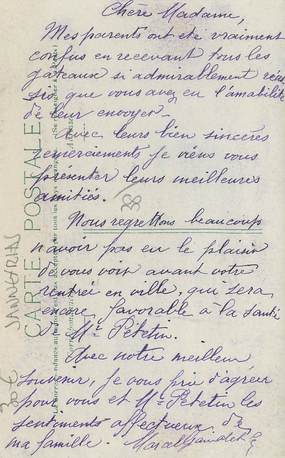 Chère Madame,
Mes parents ont été vraiment
confus en recevant tous les
gâteaux si admirablement réus
sis que vous avez eu l'amabilité
de leur envoyer.
Avec leurs bien sincères
remerciements je viens vous
présenter leurs meilleures
amitiés.
Nous regrettons beaucoup
n'avoir pas eu le plaisir
de vous voir avant votre
rentrée en ville, qui sera
encore favorable à la santé
Mr Pétetin.
Avec notre meilleur
souvenir, je vous prie d'agréer
pour vous et Mr Petetin les
sentiments affectueux de
ma famille.
CARTE POSTALE